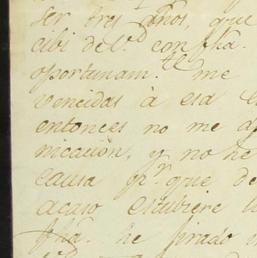 ser tres años, que
cibi de V.d con fha.
oportunam.te me
vencidas à esa
entonces no me
nicacion, y no he
causa p.r que de
acaso estubiere
fha. he girado